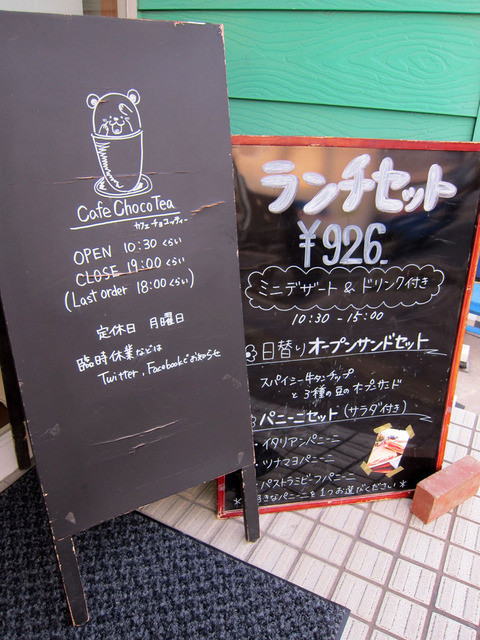 Cafe ChocoTea
カフェ チョコッティー
OPEN 10:30 くらい
CLOSE 19:00 くらい
(Last order 18:00 くらい)
定休日 月曜日
臨時休業などは
Twitter, Facebookでお知らせ
ランチセット
¥926
ミニデザート & ドリンク付き
10:30 - 15:00
日替りオープンサンドセット
スパイシー牛タンチップ
と3種の豆のオープンサンド
パニーニセット(サラダ付き)
・イタリアンパニーニ
・ツナマヨパニーニ
パストラミビーフパニーニ
きなパニーニを1つお選びください*